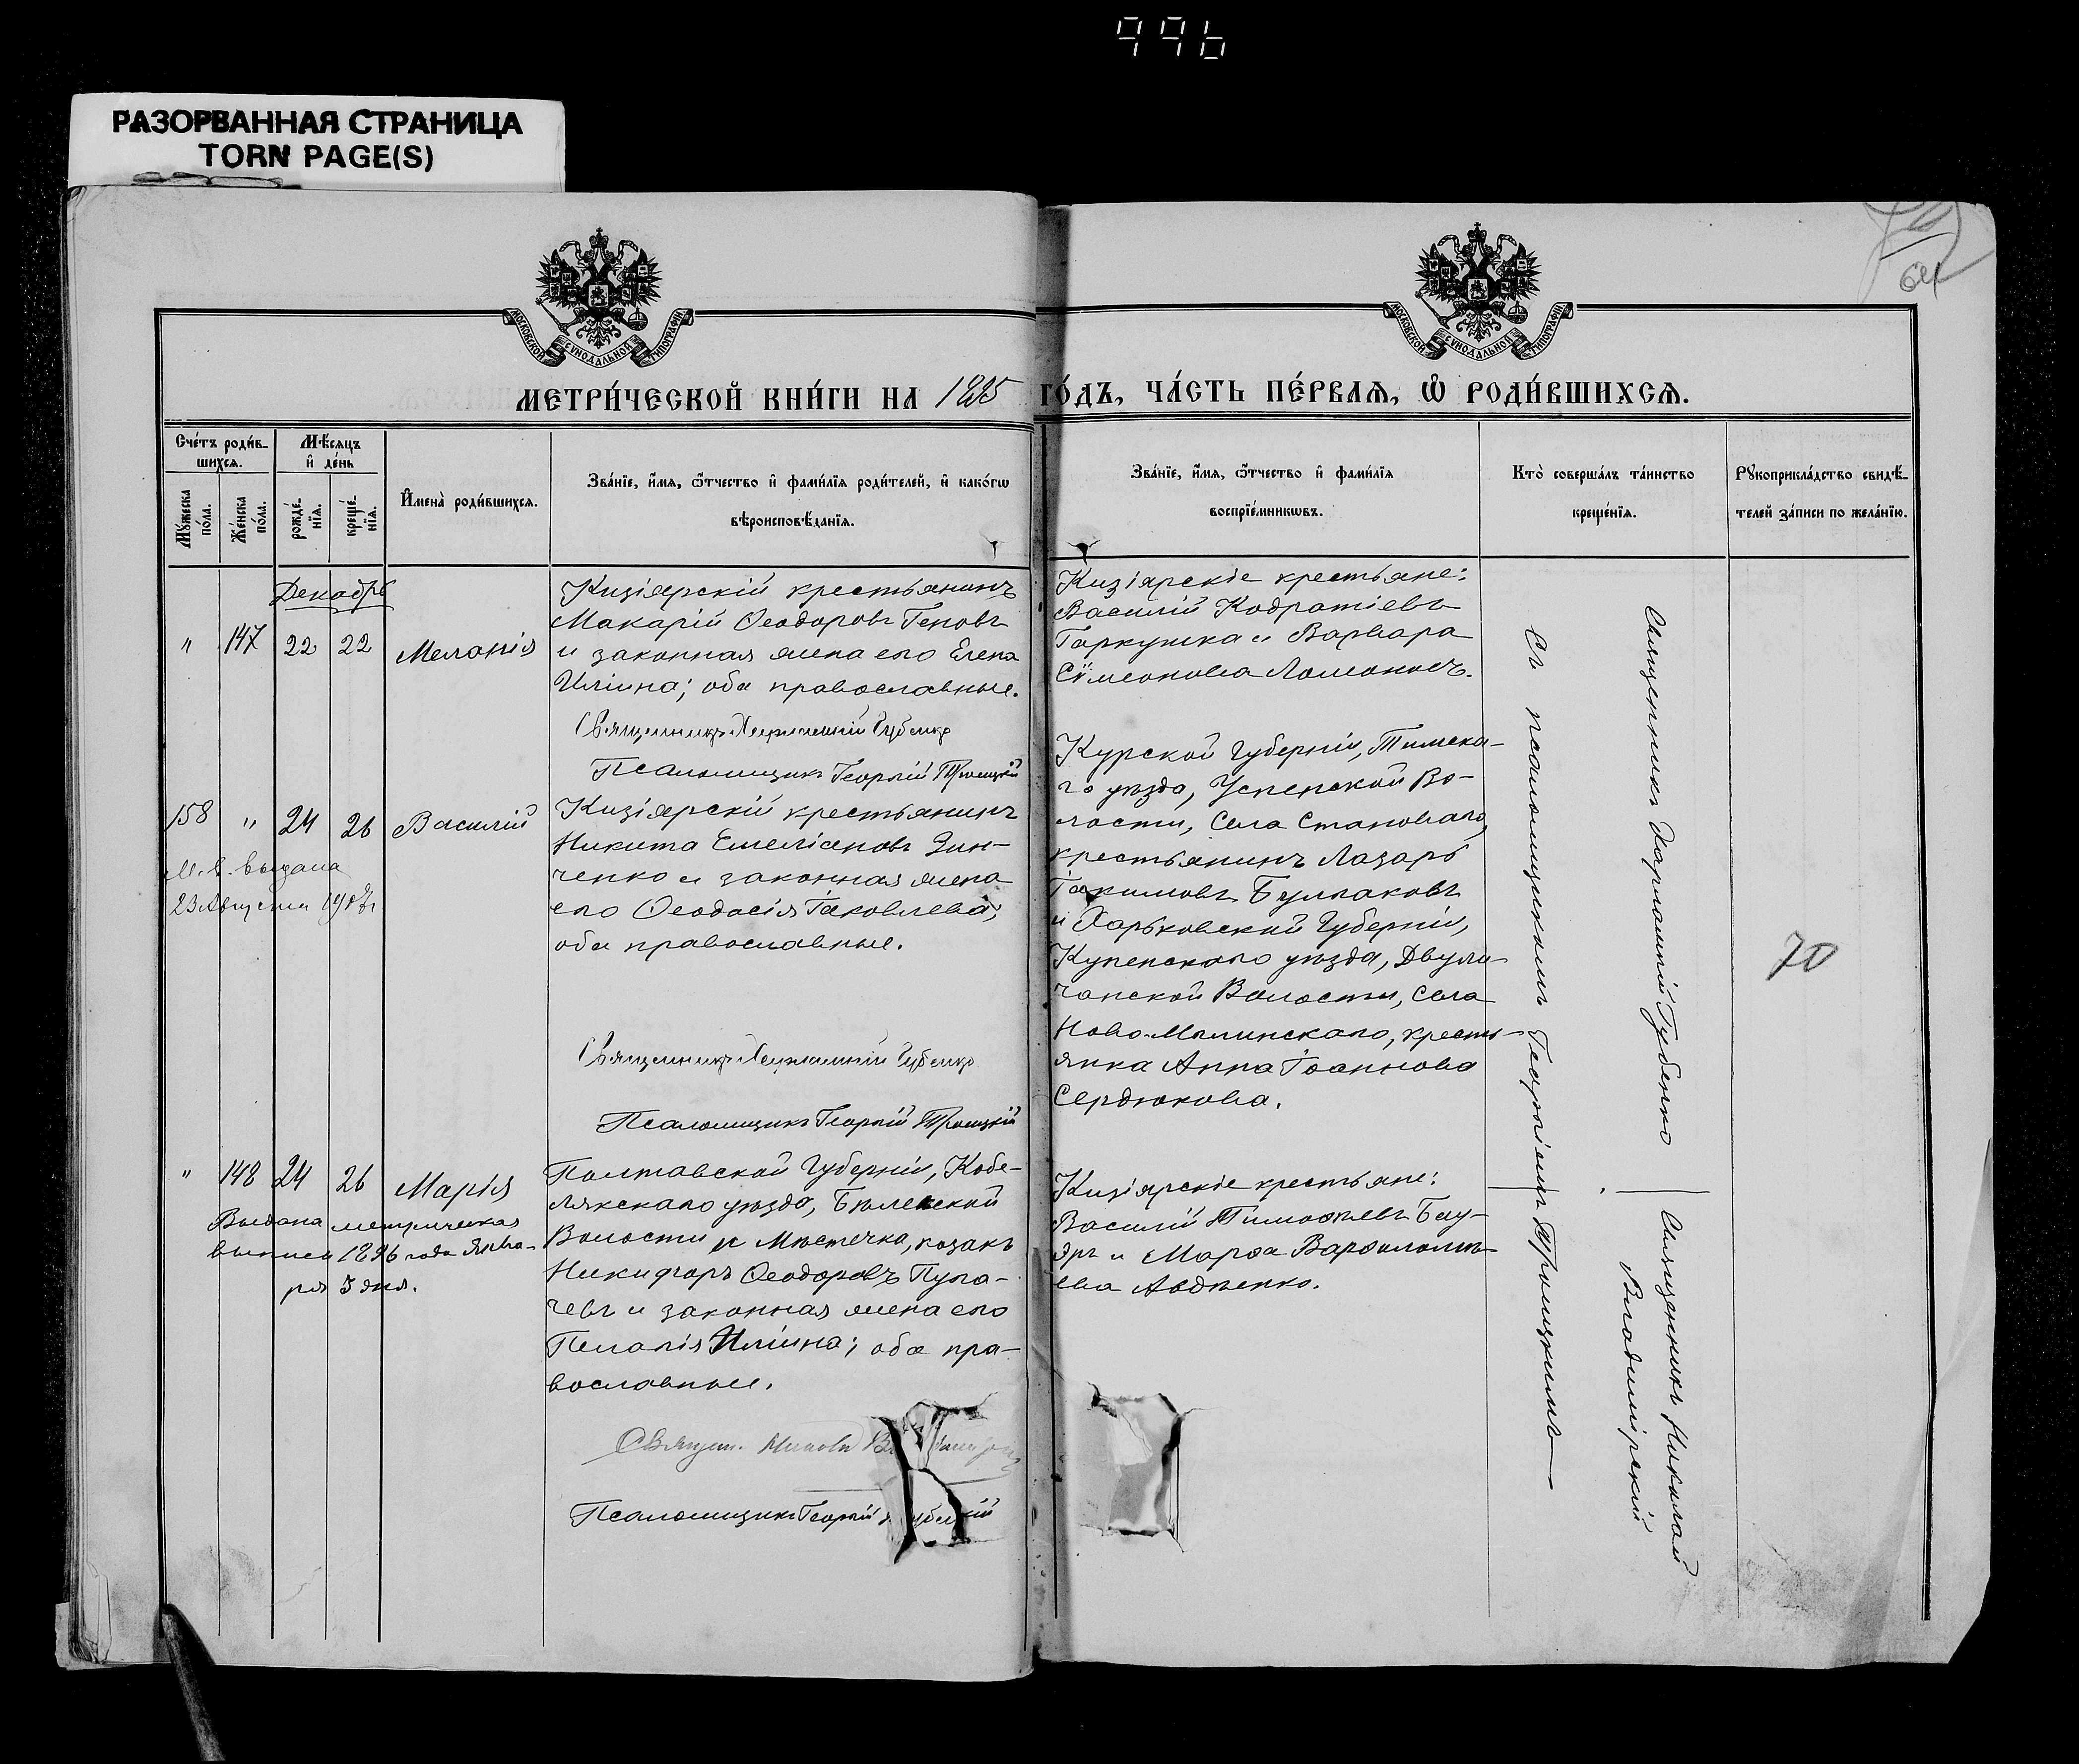 996
РАЗОРВАННАЯ СТРАНИЦА
TORN PAGE(S)
МОСКОВСКОЙ СѴНОДАЛЬНОЙ ТИПОГРАФІИ
МОСКОВСКОЙ СѴНОДАЛЬНОЙ ТИПОГРАФІИ
64
МЕТРИ́ЧЕСКОЙ КНИ́ГИ НА 1895 ГО́ДЪ, ЧА́СТЬ ПЕ́РВАѦ, Ѡ РОДИ́ВШИХСѦ.
Сче́тъ роди́в-
шихся.
Мѣ́сяцъ
и де́нь
Му́жеска
по́ла.
Же́нска
по́ла.
рожде́-
нїя.
креще́-
нїя.
Имена̀ роди́вшихся.
Зва́нїе, и́мя, ѻ́тчество и фами́лїя роди́телей, и како́гѡ
вѣроисповѣ́данїя.
Зва́нїе, и́мя, ѻ́тчество и фами́лїя
воспрїе́мникѡвъ.
Кто̀ соверша́лъ та́инство
креще́нїя.
Рꙋкоприкла́дство свидѣ́-
телей за́писи по жела́нїю.
Декабрь
" 147 22 22 Меланія
Кизіярскій крестьянинъ
Макарій Ѳеодоровъ Геновъ
и законная жена его Елена
Иліина; оба православные.
Священникъ Харлампій Губенко
Псаломщикъ Георгій Троицкій
Кизіярскіе крестьяне:
Василій Кодратіевъ
Гаркушка и Варвара
Сѵмеонова Ломоносъ.
158 " 24 26 Василій
М. в. выдана
23 Августа
Кизіярскій крестьянинъ
Никита Емеліановъ Зин-
ченко и законная жена
его Ѳеодосія Іаковлева;
оба православные.
Священникъ Харлампій Губенко
Псаломщикъ Георгій Троицкій
Курской Губерніи, Тимска-
го уѣзда, Успенской Во-
лости, Села Становаго,
крестьянинъ Лазарь
Іакимовъ Булгаковъ
и Харьковской Губерніи,
Купенскаго уѣзда, Двулу-
чанской Волости, Села
Ново-Млинскаго, кресть-
янка Анна Іоаннова
Сердюкова.
" 148 24 26 Марія
Выдана метрическая
выпись 1896 года Янва-
ря 3 дня.
Полтавской Губерніи, Кобе-
лякскаго уѣзда, Бѣлекской
Волости и Мѣстечка, козакъ
Никифоръ Ѳеодоровъ Пуга-
чевъ и законная жена его
Пелагія Иліина; оба пра-
вославные.
Священ. Николай
Псаломщикъ Георгій
Кизіярскіе крестьяне:
Василій Тимоѳеевъ Бау-
яръ и Марѳа Варѳоломѣ-
ева Авдѣенко.
Священникъ Харлампій Губенко
Съ псаломщикомъ Георгіемъ Троицкимъ
Священникъ Николай
Владимірскій
70